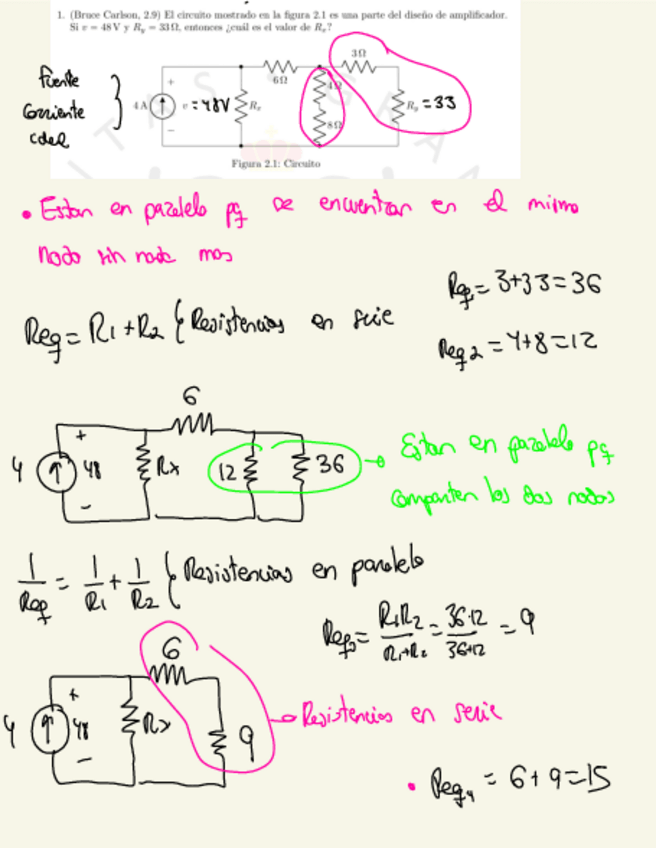 1. (Bruce Carlson, 2.9) El circuito mostrado en la figura 2.1 es una parte del diseño de amplificador.
Si v = 48 V y Ry = 33 Ω, entonces ¿cuál es el valor de Rx?
3Ω
6Ω
Fuente
Corriente
4 A
+
v
= 48V
Rx
4Ω
8Ω
Ry
= 33
−
Figura 2.1: Circuito
• Estan en paralelo pq se encuentran en el mismo
nodo sin nada mas
Req = 3+33=36
Req = R1 + R2 { Resistencias en serie
Req2 = 4+8=12
6
4
+
48
−
Rx
12
36
Estan en paralelo pq
comparten los dos nodos
1/Req = 1/R1 + 1/R2 { Resistencias en paralelo
Req3 = R1R2/R1+R2 = 36·12/36+12 = 9
6
4
+
48
−
Rx
9
Resistencias en serie
• Req4 = 6+9=15